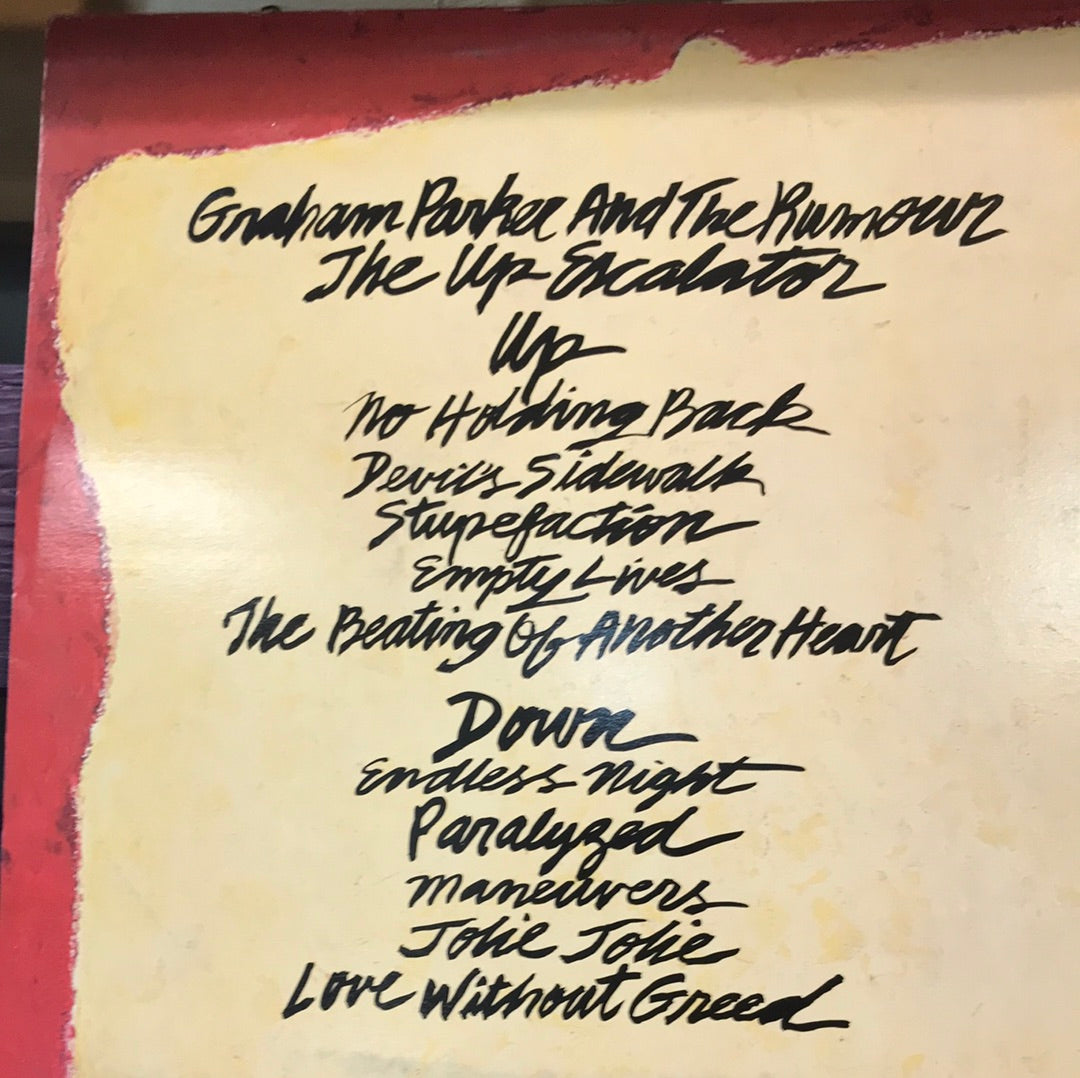 Graham Parker And The Rumour
The Up Escalator
Up
No Holding Back
Devil's Sidewalk
Stupefaction
Empty Lives
The Beating Of Another Heart
Down
Endless Night
Paralyzed
Maneuvers
Jolie Jolie
Love Without Greed